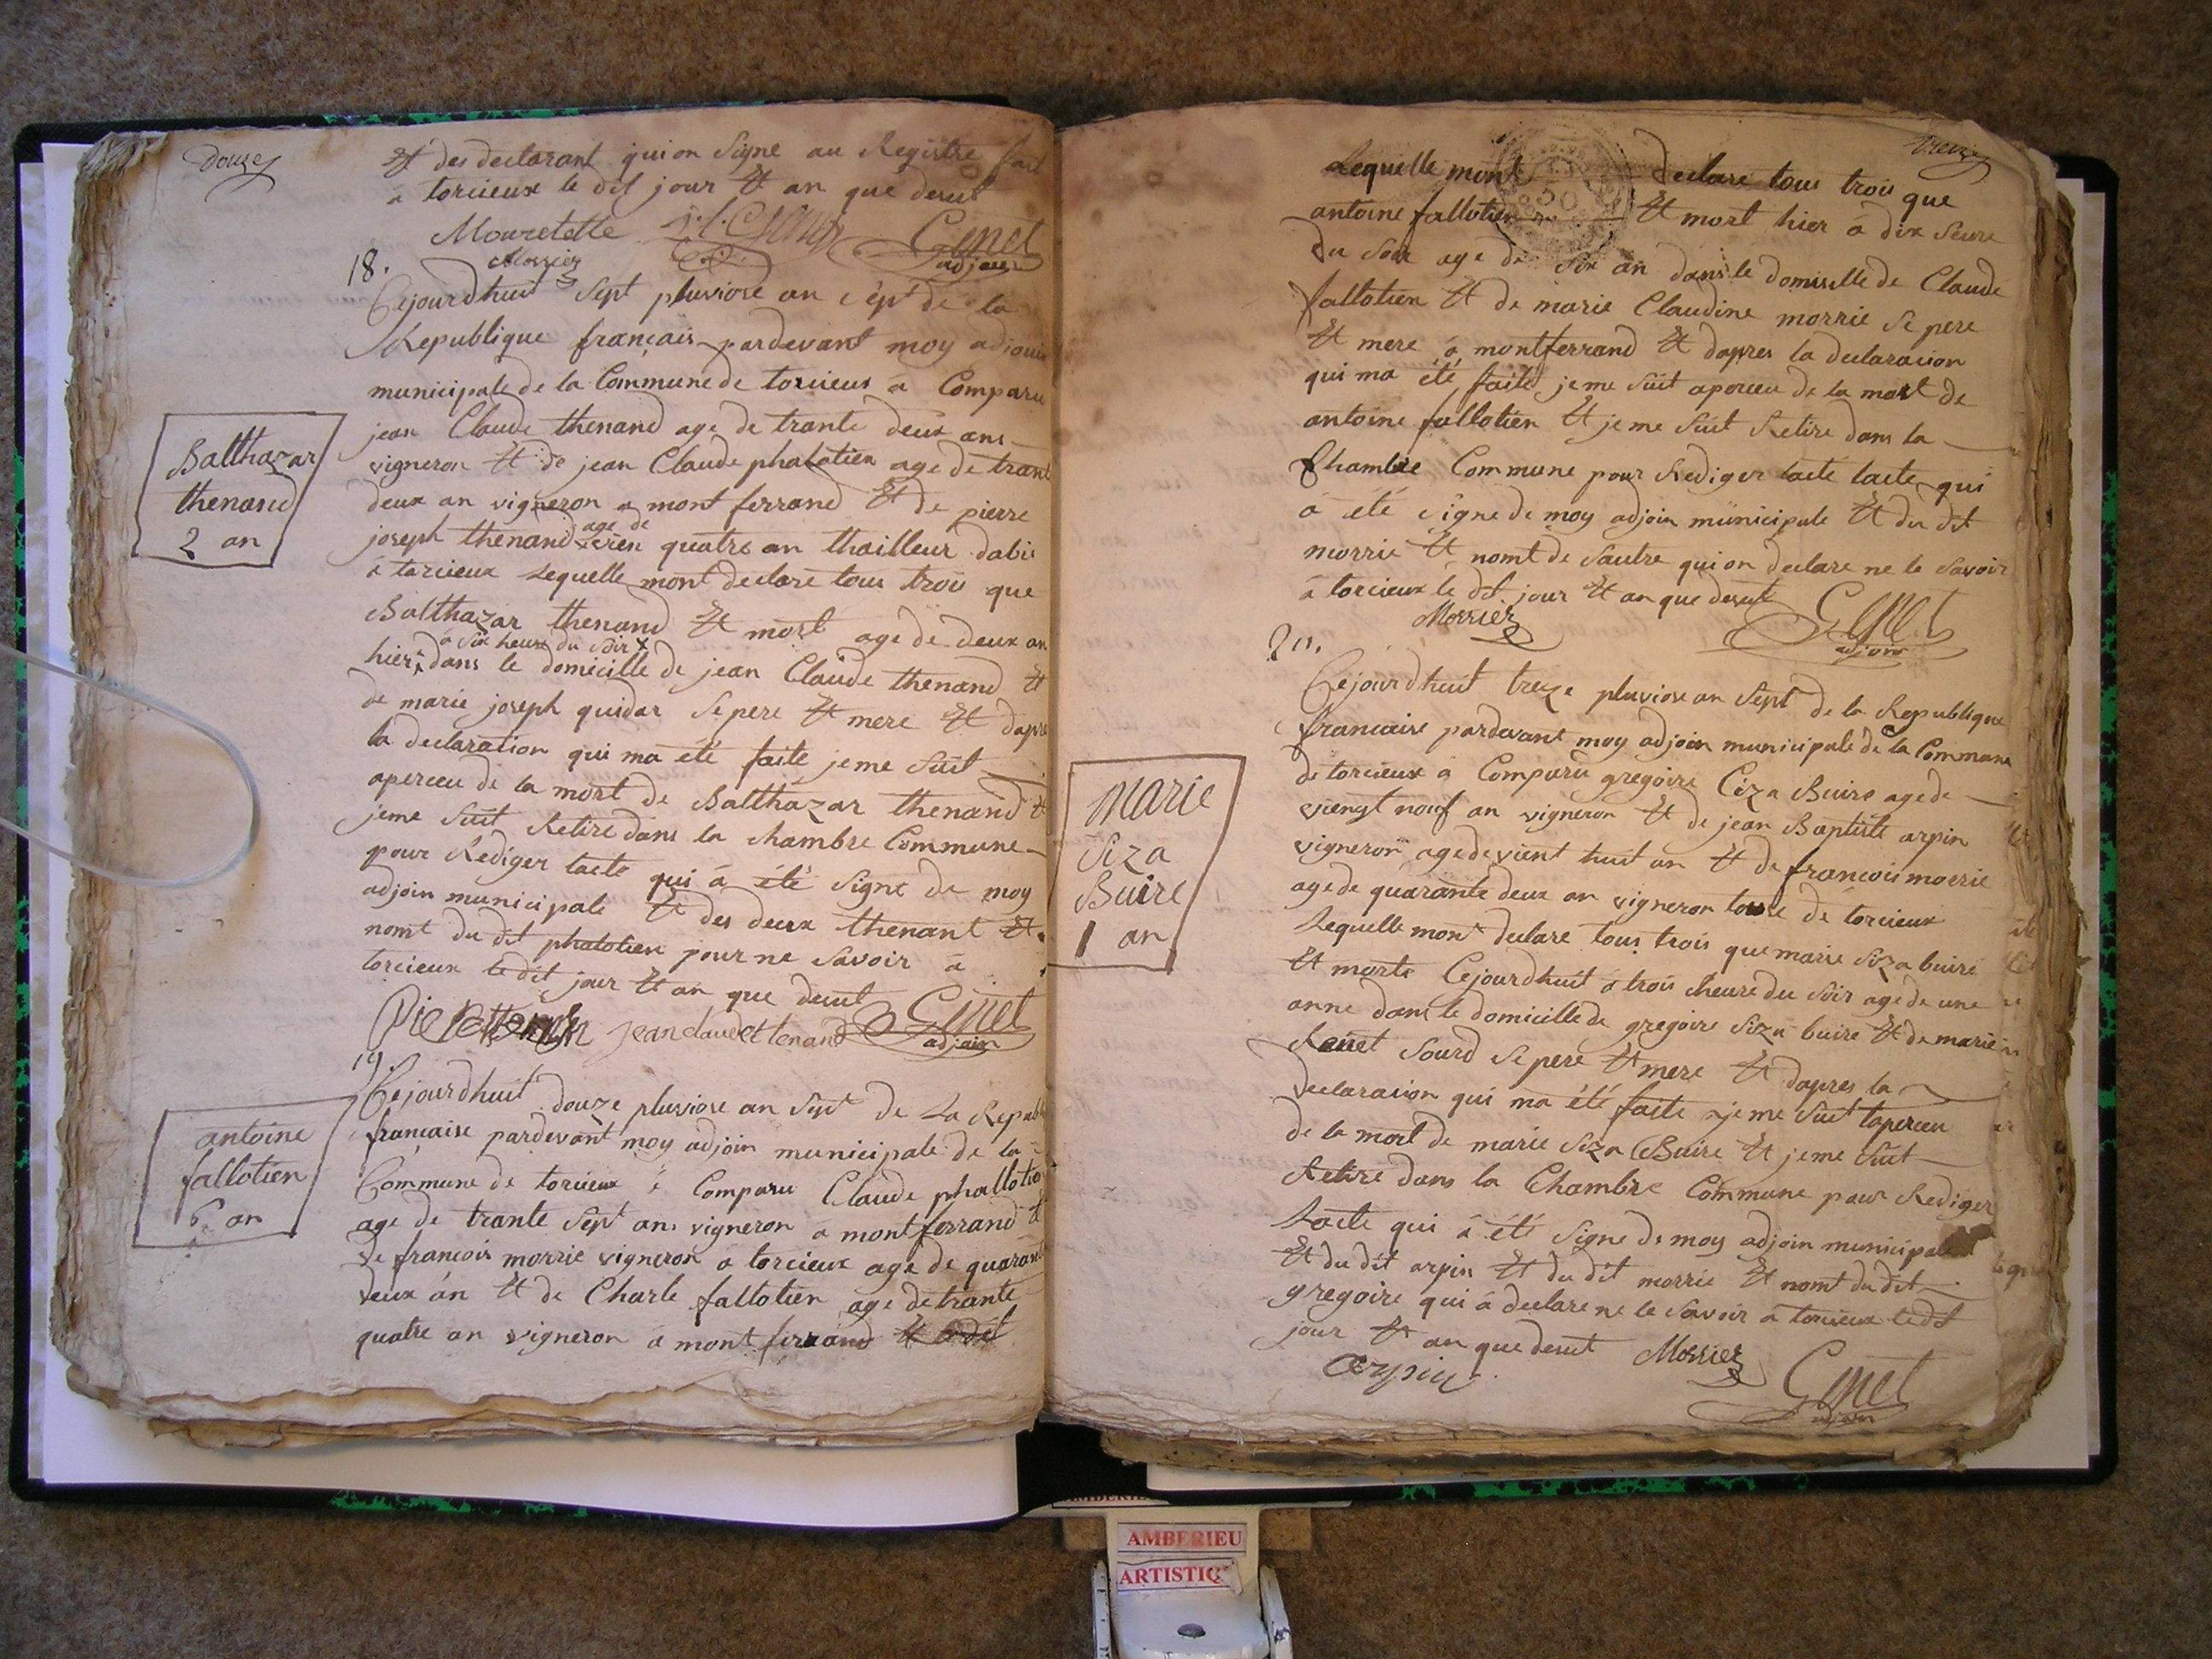 douze
Et des declarant qui on Signe au Registre fait
a torcieux le dit jour Et an que desut
Mouretelle Genet
Morrier adjoin
18.
Cejourdhuit Sept pluviose an Sept de la
Republique français pardevant moy adjouin
municipale de la Commune de torcieux a Comparu
jean Claude thenand age de trante deux ans
vigneron Et de jean Claude phalotien age de trant
deux an vigneron a mont ferrand Et de pierre
joseph thenand age de vien quatre an thailleur dabis
a torcieux Lequelle mont declare tous trois que
Balthazar thenand Et mort age de deux an
hier a six heure du soir dans le domicille de jean Claude thenand Et
de marie joseph quidar Se pere Et mere Et dapre
la declaration qui ma été faite jeme Suit
aperceu de la mort de Balthazar thenand Et
jeme Suit Retire dans la chambre Commune
pour Rediger lacte qui á été Signe de moy
adjoin municipale Et des deux thenant Et
nomt du dit phalotien pour ne Savoir á
torcieux le dit jour Et an que desut
jean claude thenand Genet
adjoin
Balthazar
thenand
2 an
19.
Cejourdhuit douze pluviose an Sept de La Republ
francaise pardevant moy adjoin municipale de la
Commune de torcieux á Comparu Claude phallotien
age de trante Sept ans vigneron a montferrand Et
de francois morrie vigneron a torcieux age de quarant
deux án Et de Charle fallotien age de trante
quatre an vigneron á mont ferrand
antoine
fallotien
6 an
treize
Lequelle mont declare tous trois que
antoine fallotien Et mort hier a dix heure
du Soir age de Six an dans le domicille de Claude
fallotien Et de marie Claudine morrie Se pere
Et mere á montferrand Et dapres la declaracion
qui ma été faite jeme Suit aperceu de la mort de
antoine fallotien Et jeme Suit Retire dans la
Chambre Commune pour Rediger lacte lacte qui
á été Signe de moy adjoin municipale Et du dit
morrie Et nomt de Sautre qui on declare ne le Savoir
á torcieux le dit jour Et an que desut
Morrier Genet
adjoin
20.
Cejourdhuit treze pluviose an Sept de la Republique
francaise pardevant moy adjoin municipale de la Commune
de torcieux á Comparu gregoire Ciza Buire age de
viengt nouf an vigneron Et de jean Baptiste arpin
vigneron age de vient huit an Et de francois morrie
age de quarante deux an vigneron tous de torcieux
Lequelle mont declare tous trois que marie Siza buire
Et morte Cejourdhuit á trois heure du Soir age de une
anne dans le domicille de gregoire Siza buire Et de marie
Sourd Se pere Et mere Et dapres la
declaracion qui ma été faite jeme Suit laperceu
de la mort de marie Siza Buire Et jeme Suit
Retire dans la Chambre Commune pour Rediger
Lacte qui á été Signe de moy adjoin municipale
Et du dit arpin Et du dit morrie Et nomt du dit
gregoire qui á declare ne le Savoir a torcieux le dit
jour Et an que desut Morrier
arpin Genet
adjoin
marie
Siza
Buire
1 an
AMBERIEU
ARTISTIQ